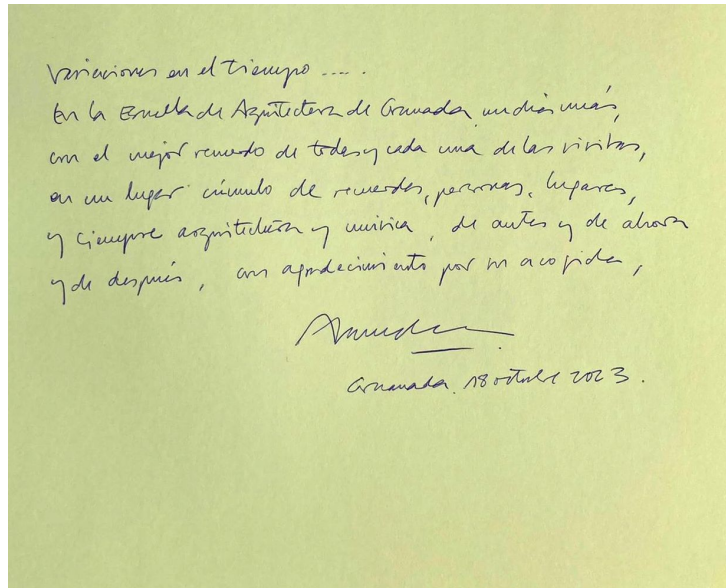 Variaciones en el tiempo ....
En la Escuela de Arquitectura de Granada, un día más,
con el mejor recuerdo de todas y cada una de las visitas,
en un lugar cúmulo de recuerdos, personas, lugares,
y siempre arquitectura y música, de antes y de ahora
y de después, con agradecimiento por su acogida,
Granada, 18 octubre 2023.